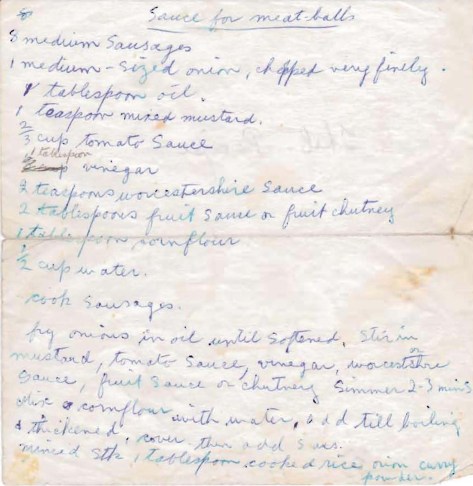 Sauce for meat-balls
8 medium Sausages
1 medium-sized onion, chopped very finely.
1 tablespoon oil.
1 teaspoon mixed mustard.
2/3 cup tomato Sauce
1 tablespoon
vinegar
2 teaspoons worcestershire Sauce
2 tablespoons fruit Sauce or fruit chutney
1 tablespoon cornflour
1/2 cup water.
Cook Sausages.
fry onions in oil until softened. Stir in
mustard, tomato Sauce, vinegar, worcestshire
Sauce, fruit Sauce or chutney Simmer 2-3 mins
Mix cornflour with water, add till boiling
& thickened. cover then add
minced Stk, 1 tablespoon cooked rice onion curry
powder.